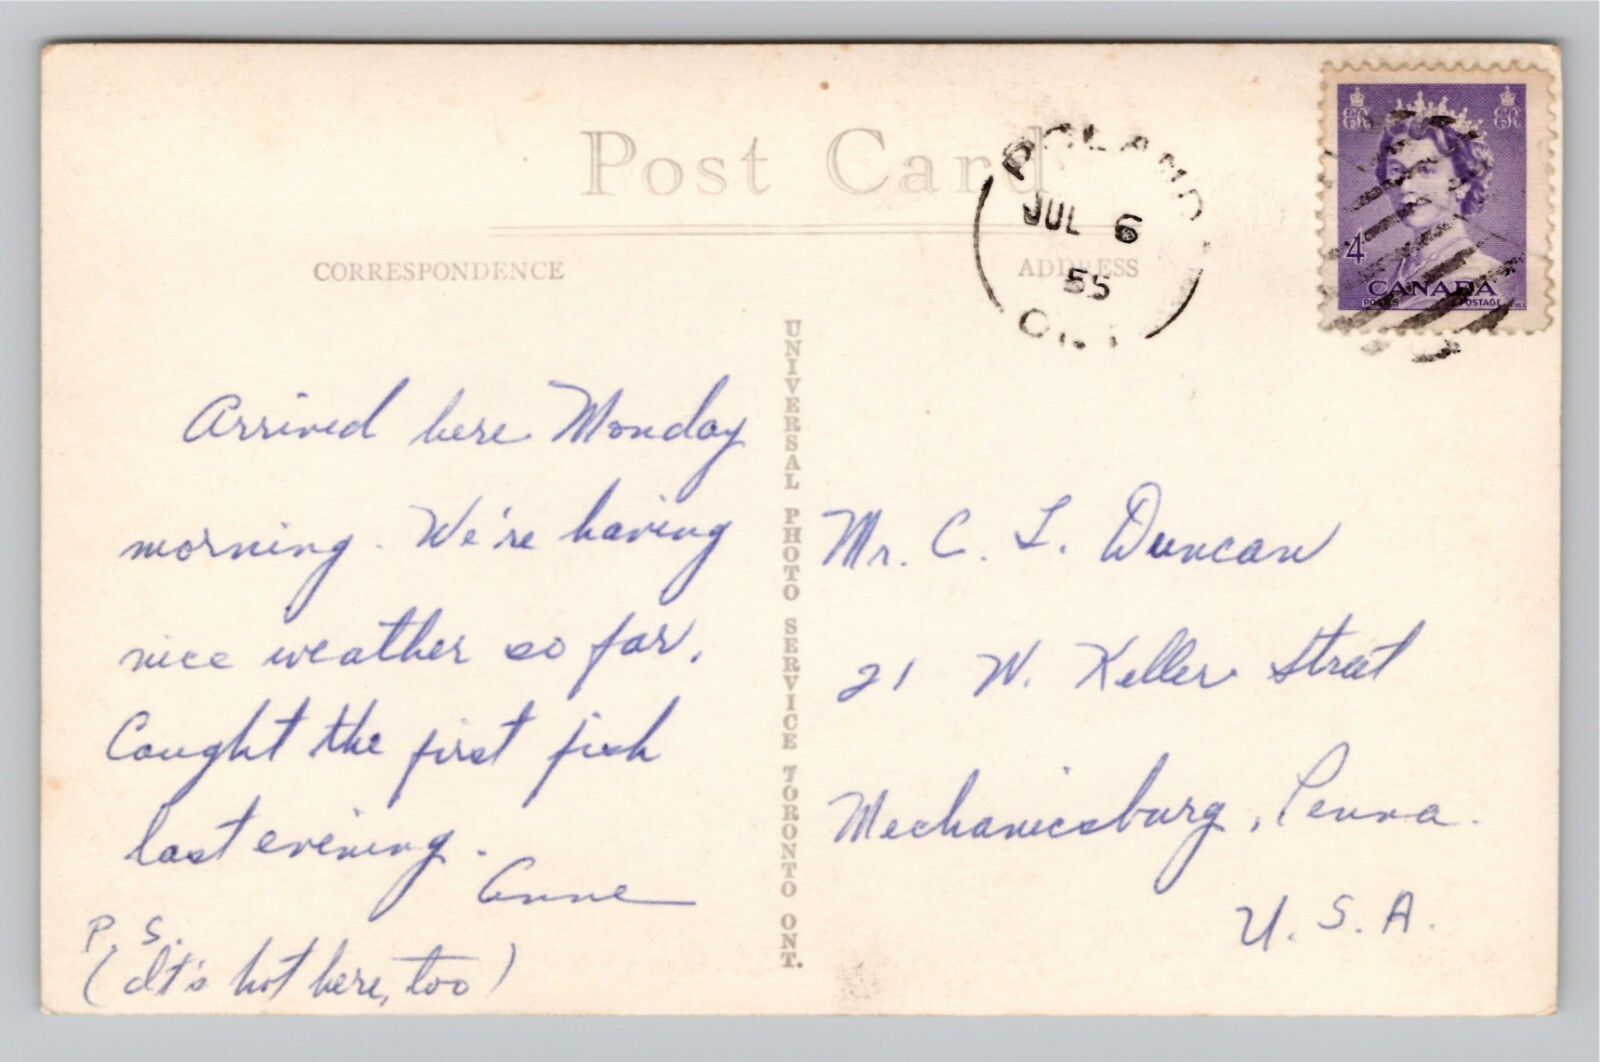 Post Card
CORRESPONDENCE
ADDRESS
POLAND
JUL 6
55
ONT
ER
ER
4
CANADA
POSTES POSTAGE
UNIVERSAL PHOTO SERVICE TORONTO ONT.
Arrived here Monday
morning. We're having
nice weather so far.
Caught the first fish
last evening.
Anne
P. S.
(It's hot here, too)
Mr. C. L. Duncan
21 W. Keller Street
Mechanicsburg, Penna.
U. S. A.